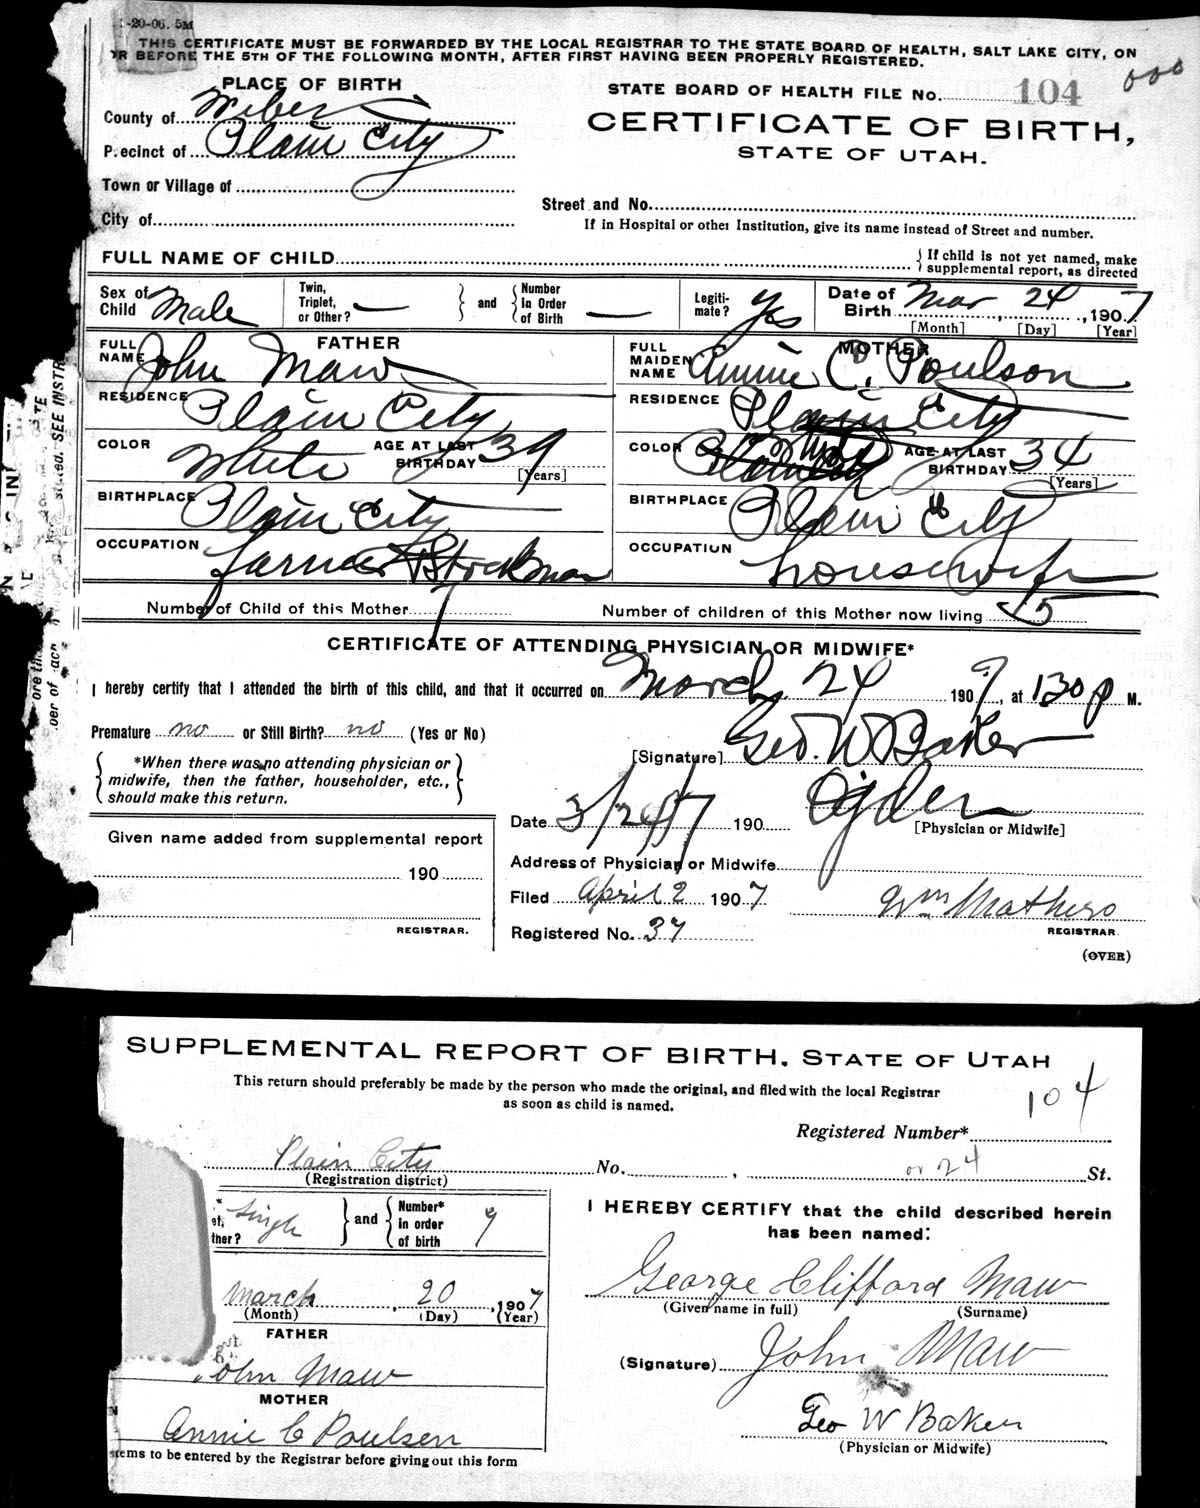 1-20-06. 5M
THIS CERTIFICATE MUST BE FORWARDED BY THE LOCAL REGISTRAR TO THE STATE BOARD OF HEALTH, SALT LAKE CITY, ON
OR BEFORE THE 5TH OF THE FOLLOWING MONTH, AFTER FIRST HAVING BEEN PROPERLY REGISTERED.
PLACE OF BIRTH
STATE BOARD OF HEALTH FILE No. 104
000
County of Weber
CERTIFICATE OF BIRTH,
Precinct of Plain City
STATE OF UTAH.
Town or Village of
Street and No.
City of
If in Hospital or other Institution, give its name instead of Street and number.
FULL NAME OF CHILD
{ If child is not yet named, make supplemental report, as directed
Sex of Child Male Twin, Triplet, or Other? — } and { Number in Order of Birth — Legiti-mate? Yes Date of Birth Mar 24, 1907
[Month] [Day] [Year]
FATHER MOTHER
FULL NAME John Maw FULL MAIDEN NAME Annie C. Poulson
RESIDENCE Plain City RESIDENCE Plain City
COLOR White AGE AT LAST BIRTHDAY 39 [Years] COLOR AGE AT LAST BIRTHDAY 34 [Years]
BIRTHPLACE Plain City BIRTHPLACE Plain City
OCCUPATION Farmer & Stockman OCCUPATION housewife
Number of Child of this Mother 7 Number of children of this Mother now living 5
CERTIFICATE OF ATTENDING PHYSICIAN OR MIDWIFE*
I hereby certify that I attended the birth of this child, and that it occurred on March 24 1907, at 130 P M.
Premature no or Still Birth? no (Yes or No)
[Signature] Geo. W Baker
{ *When there was no attending physician or midwife, then the father, householder, etc., should make this return. }
Date 3/24/7 190 Ogden
[Physician or Midwife]
Given name added from supplemental report
Address of Physician or Midwife
190
Filed April 2 1907 Wm Mathers
REGISTRAR. REGISTRAR
Registered No. 37
(OVER)
SUPPLEMENTAL REPORT OF BIRTH, STATE OF UTAH
This return should preferably be made by the person who made the original, and filed with the local Registrar
as soon as child is named.
104
Registered Number*
Plain City No. , or 24 St.
(Registration district)
Single } and { Number* in order of birth 9
I HEREBY CERTIFY that the child described herein
has been named:
George Clifford Maw
(Given name in full) (Surname)
March, 20, 1907
(Month) (Day) (Year)
FATHER
John Maw
(Signature) John Maw
MOTHER
Annie C Poulsen
Geo W Baker
(Physician or Midwife)
items to be entered by the Registrar before giving out this form